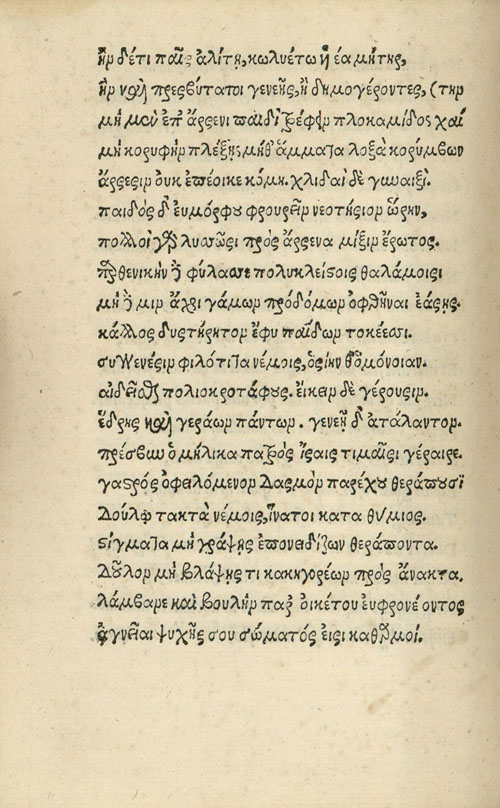 ἢν δέτι παῖς ἀλίτῃ, κωλυέτω ἢ ἑα μήτηρ,
ἢν καὶ πρεσβύτατοι γενεῆς, ἢ δημογέροντες, (τηρ
μὴ μὲν ἐπ' ἄρσενι παιδὶ τρέφειν πλοκαμίδος χαί
μὴ κορυφὴν πλέξῃς μήθ' ἅμματα λοξὰ κορύμβων
ἄρσεσιν οὐκ ἐπέοικε κόμη. χλιδαὶ δὲ γυναιξί.
παιδὸς δ' ἐυμόρφου φρουρεῖν νεοτήσιον ὥρην,
πολλοὶ γὰρ λυσσῶσι πρὸς ἄρσενα μίξιν ἔρωτος.
παρθενικὴν δὲ φύλασσε πολυκλείστοις θαλάμοισι
μὴ δὲ μιν ἄχρι γάμων πρόδόμων ὀφθῆναι ἐάσῃς.
κάλλος δυστήρητον ἔφυ παίδων τοκέεσσι.
συγγενέσιν φιλότητα νέμοις, ὁσίην θ' ὁμόνοιαν.
αἰδεῖσθαι πολιοκροτάφους. εἴκειν δὲ γέρουσιν.
ἕδρης καὶ γεράων πάντων. γενεῇ δ' ἀτάλαντον.
πρέσβυν ὁμήλικα πατρὸς ἴσαις τιμαῖσι γέραιρε.
γαστρός ὀφειλόμενον δασμὸν παρέχου θεράπουσι
Δούλῳ τακτὰ νέμοις, ἵνατοι κατα θύμιος.
στίγματα μὴ γράψῃς ἐπονειδίζων θεράποντα.
Δοῦλον μὴ βλάψῃς τι κακηγορέων πρὸς ἄνακτα.
λάμβανε καὶ βουλὴν παρ' οἰκέτου ἐυφρονέοντος
ἁγνεῖαι ψυχῆς σου σώματός εἰσι καθαρμοί.